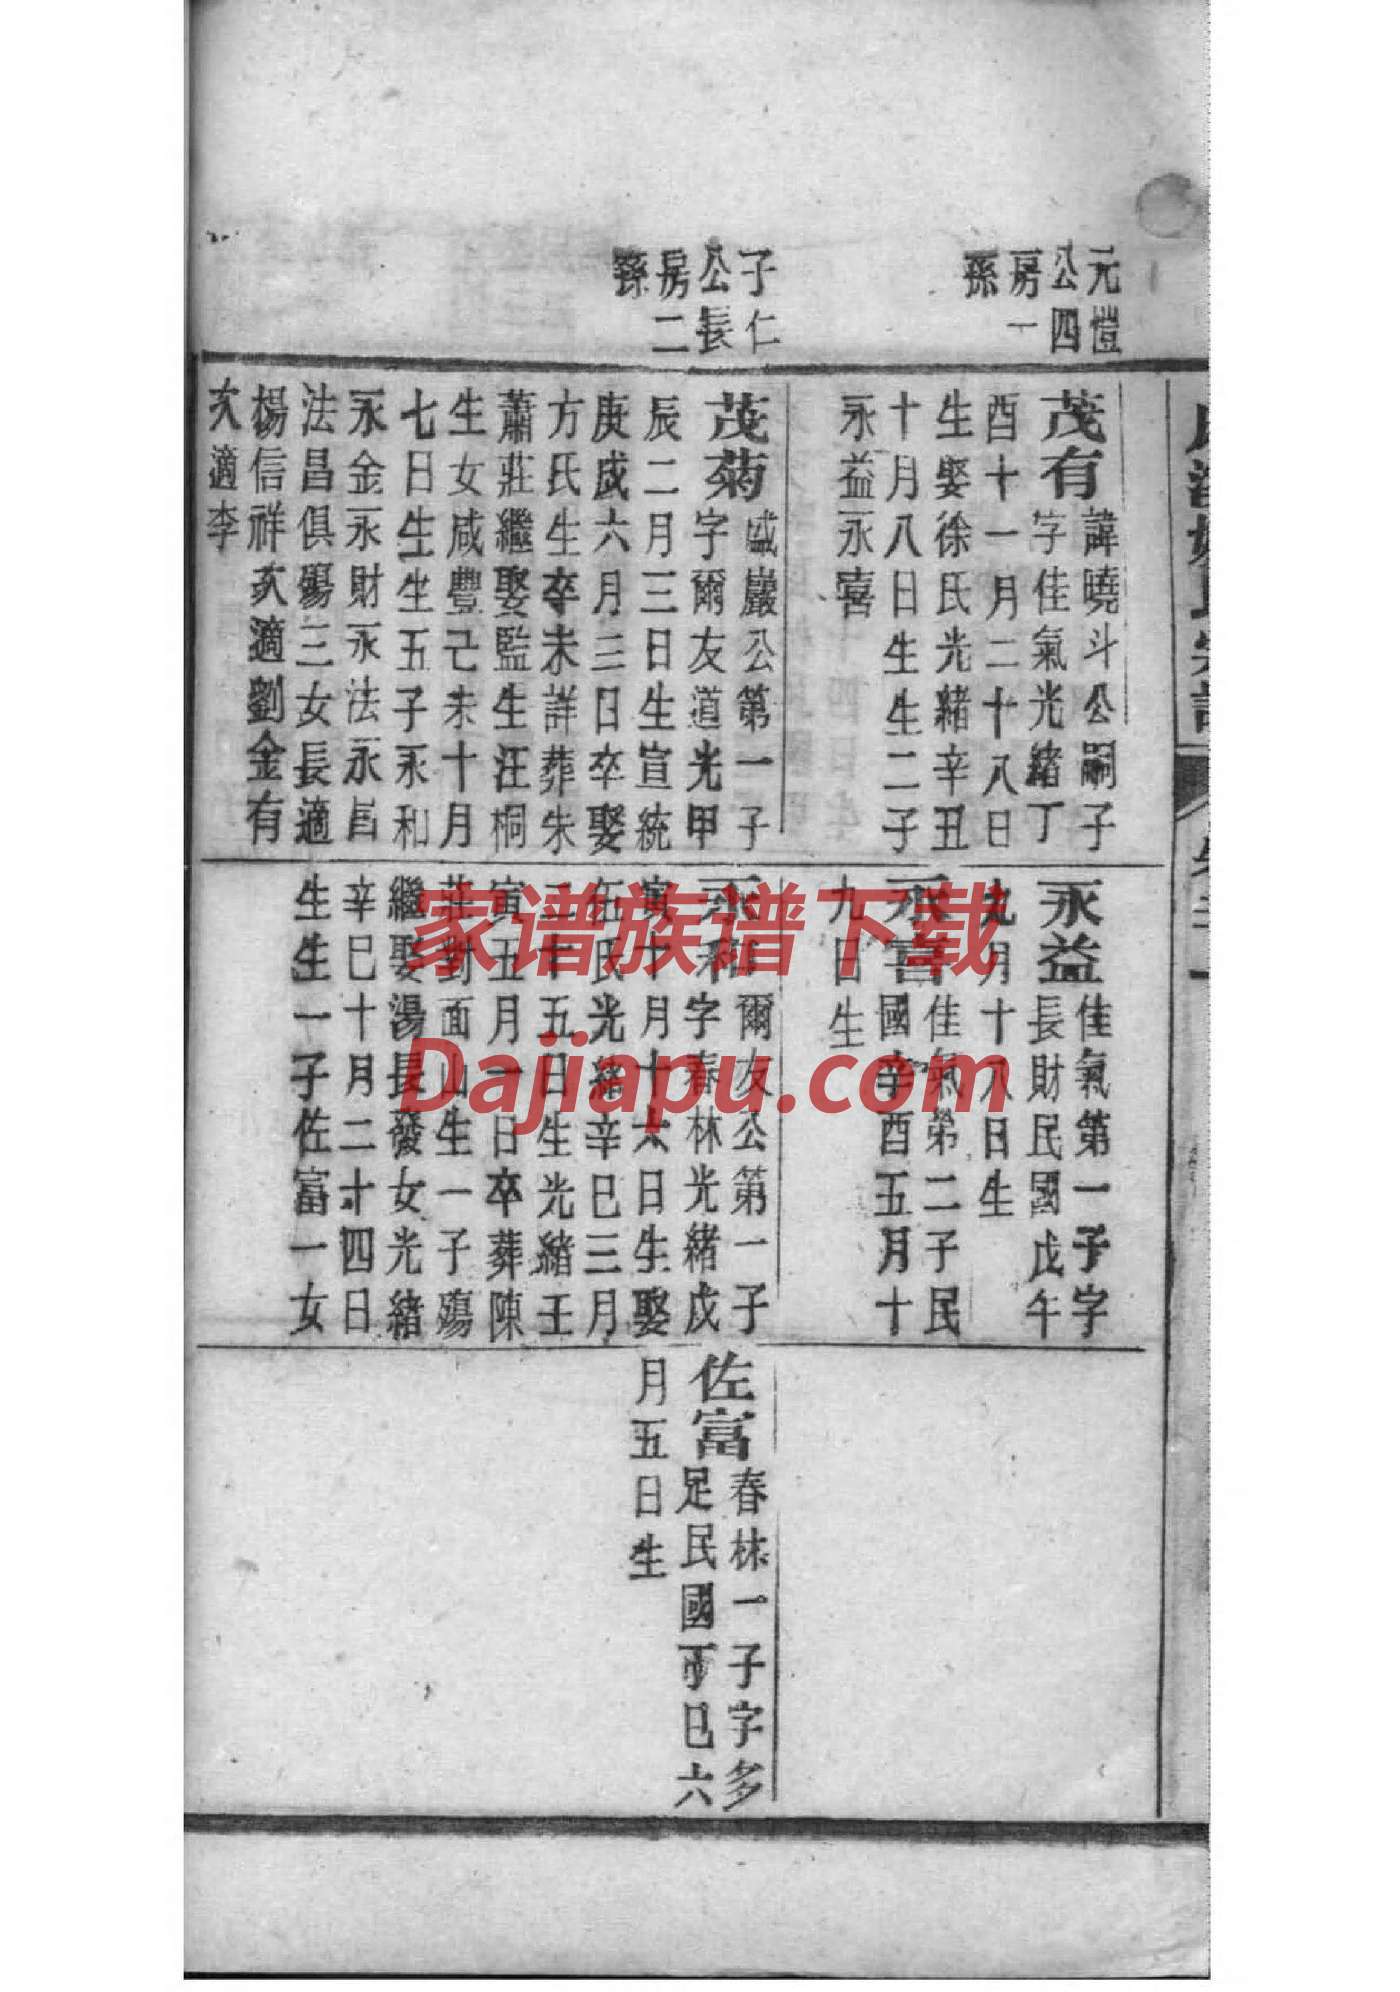 元愷
公四
房一
孫
子仁
公長
房二
孫
茂有
諱曉斗公嗣子
字佳氣光緒丁
酉十一月二十八日
生娶徐氏光緒辛丑
十月八日生生二子
永益永喜
茂菊
盛巖公第一子
字爾友道光甲
辰二月三日生宣統
庚戌六月三日卒娶
方氏生卒未詳葬朱
蕭莊繼娶監生汪桐
生女咸豐己未十月
七日生生五子永和
永金永財永法永昌
法昌俱殤三女長適
楊信祥次適劉金有
次適李
永益
佳氣第一子字
長財民國戊午
九月十八日生
永喜
佳氣第二子民
國辛酉五月十
九日生
永和
爾友公第一子
字春林光緒戊
寅十月十六日生娶
伍氏光緒辛巳三月
二十五日生光緒壬
寅五月一日卒葬陳
莊對面山生一子殤
繼娶湯長發女光緒
辛巳十月二十四日
生生一子佐富一女
佐富
春林一子字多
足民國丁巳六
月五日生
家谱族谱下载
Dajiapu.com